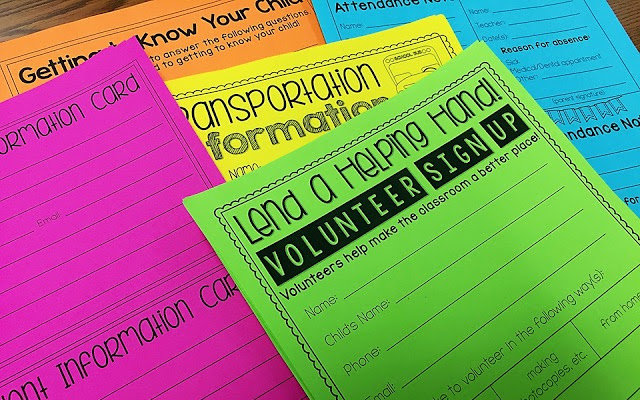 Getting to Know Your Child
to answer the following questions
to getting to know your child!
Attendance Note
Name:
Teacher:
Date(s):
Reason for absence:
Sick
Medical/Dental appointment
Other:
(parent signature)
Attendance Note
Transportation
Information
SCHOOL BUS
Name
Information Card
Email
Information Card
Lend a Helping Hand!
VOLUNTEER SIGN UP
Volunteers help make the classroom a better place!
Name:
Child's Name:
Phone:
Email:
like to volunteer in the following way(s):
making
photocopies, etc.
from home